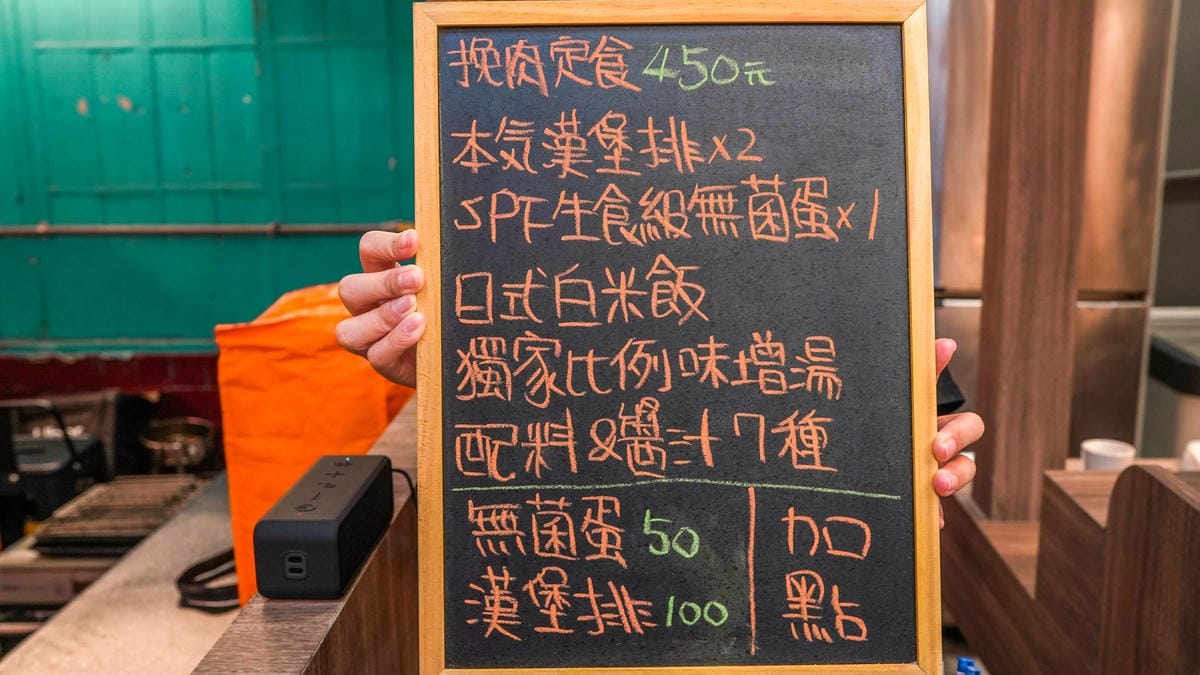 挽肉定食 450元
本気漢堡排x2
SPF生食級無菌蛋x1
日式白米飯
獨家比例味增湯
配料&醬汁7種
無菌蛋 50
漢堡排 100
加
點